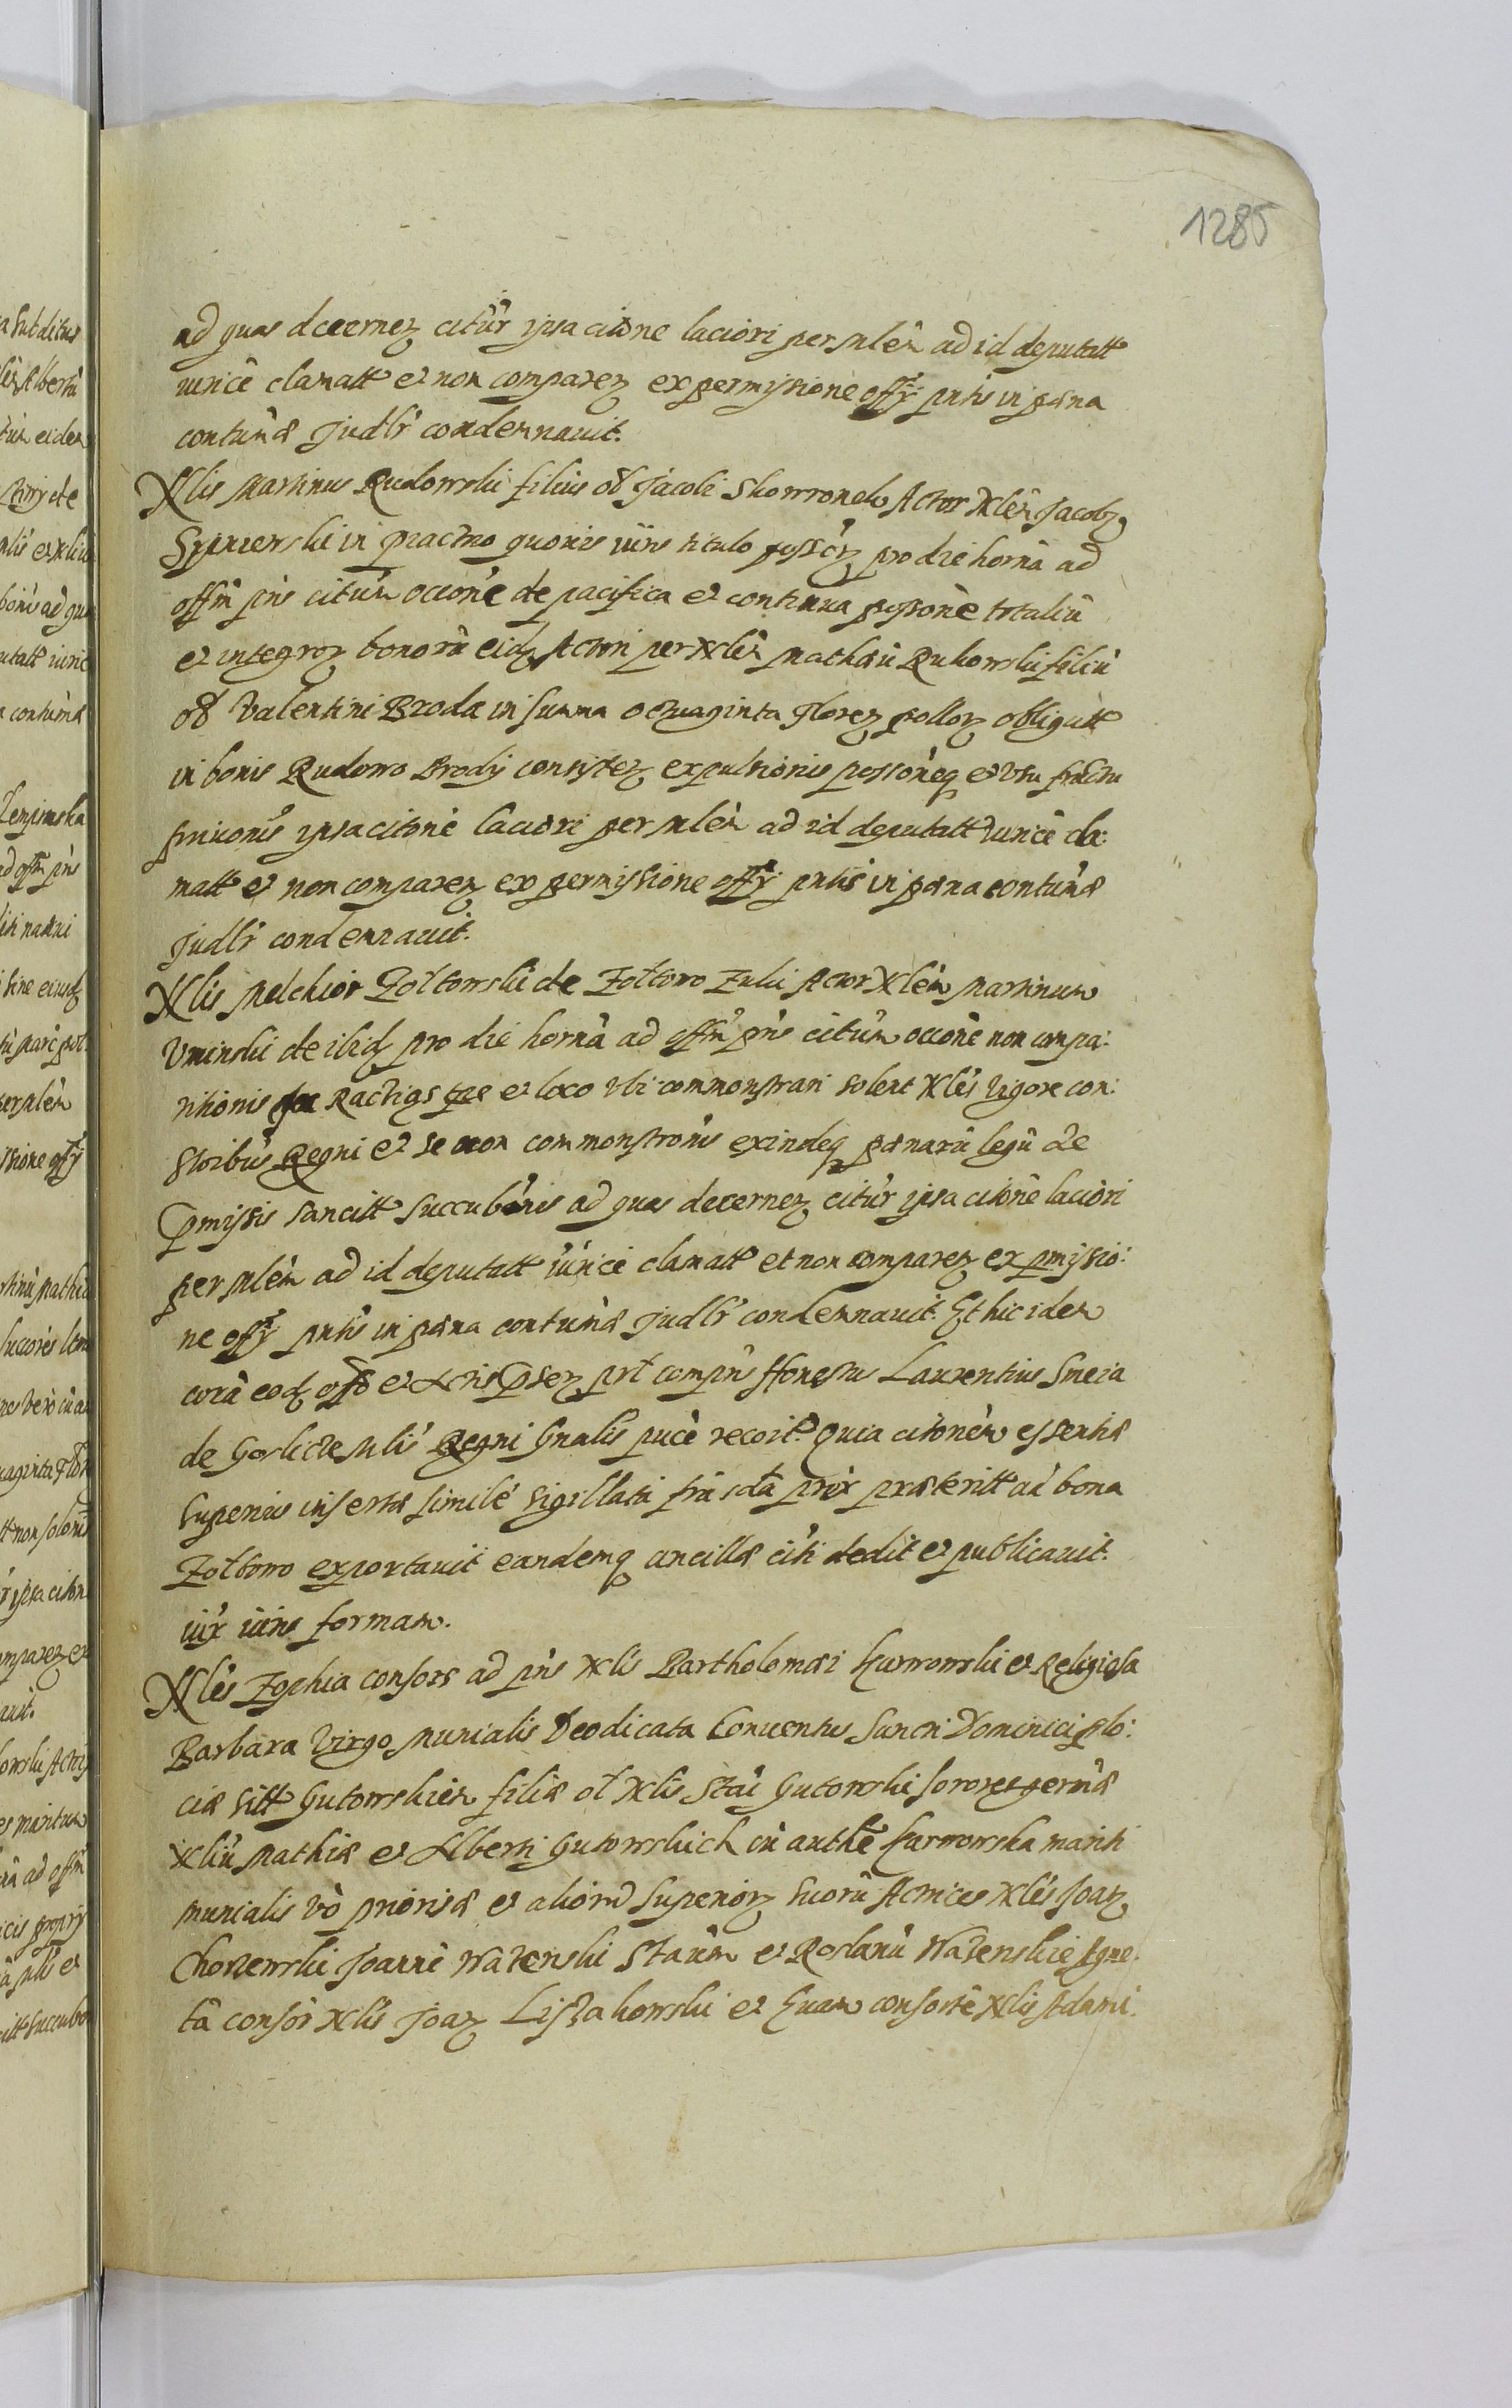 1285
ad quas decernen citur ipsa citone laciori per Mlem ad id deputatt
iurice clamatt et non comparen ex permissione offy pntis in pæna
contumæ Judlr condemnauit.
Nlis Martinus Rudowski filius ol Jacobi Skowronek Actor Nlem Jacob
in quouis iuris titulo possen pro die horna ad
offm pns citum occone de pacifica et continua possone totaliu
et integror bonoru eidq Actori per Nlem Mathiæ Rukowski filiu
ol Valentini Broda in summa octuaginta Floren pollor obligatt
in bonis Rudowo Brody consisten expulsionis possoneq et usu fructu
ipsa citone laciori per Mlem ad id deputatt iurice cla:
matt et non comparen ex permissione offy pntis in pæna contumæ
Judlr condemnauit.
Nlis Melchior Zoltowski de Zoltowo Zuki Actor Nlem Martinum
Uminski de ibid pro die horna ad offm pns citum occone non compa:
ritionis et loco ubi commonstrari solent Nles vigore con:
stoibus Regni et se non commonstronis exindeq pænaru legu de
pmissis sancitt succubonis ad quas decernen citur ipsa citone laciori
per Mlem ad id deputatt iurice clamatt et non comparen ex pmissio:
ne offy pntis in pæna contumæ Judlr condemnauit. Et hic idem
cora eod offo et Actis psen prt compns Honestus Laurentius Smeia
de Goslicze Mlis Regni Gnalis puce recoit. Quia citonem essentiæ
superius insertæ simile sigillata fra sda prix præteritt ad bona
Zoltowo exportauit eandemq ancillæ citi dedit et publicauit.
iux iuris formam.
Nles Zophia consors ad pns Nlis Bartholomæi Karwowski et Religiosa
Barbara Virgo Munialis Deodicata Conuentus Sancti Dominici plo:
ciæ sitt Gutowskien filiæ ol Nlis Stai Gutowski sorores germæ
Nliu Mathiæ et Alberti Gutowskich in authe Karwowska mariti
munialis vo priorisæ et alioru superior suoru Actrices Nles Joan
Chorzewski Joanne Warenski Staum et Roslanu Warenskie Agne:
ta consor Nlis Joan Lisczakowski et Euam consorte Nlis Adami